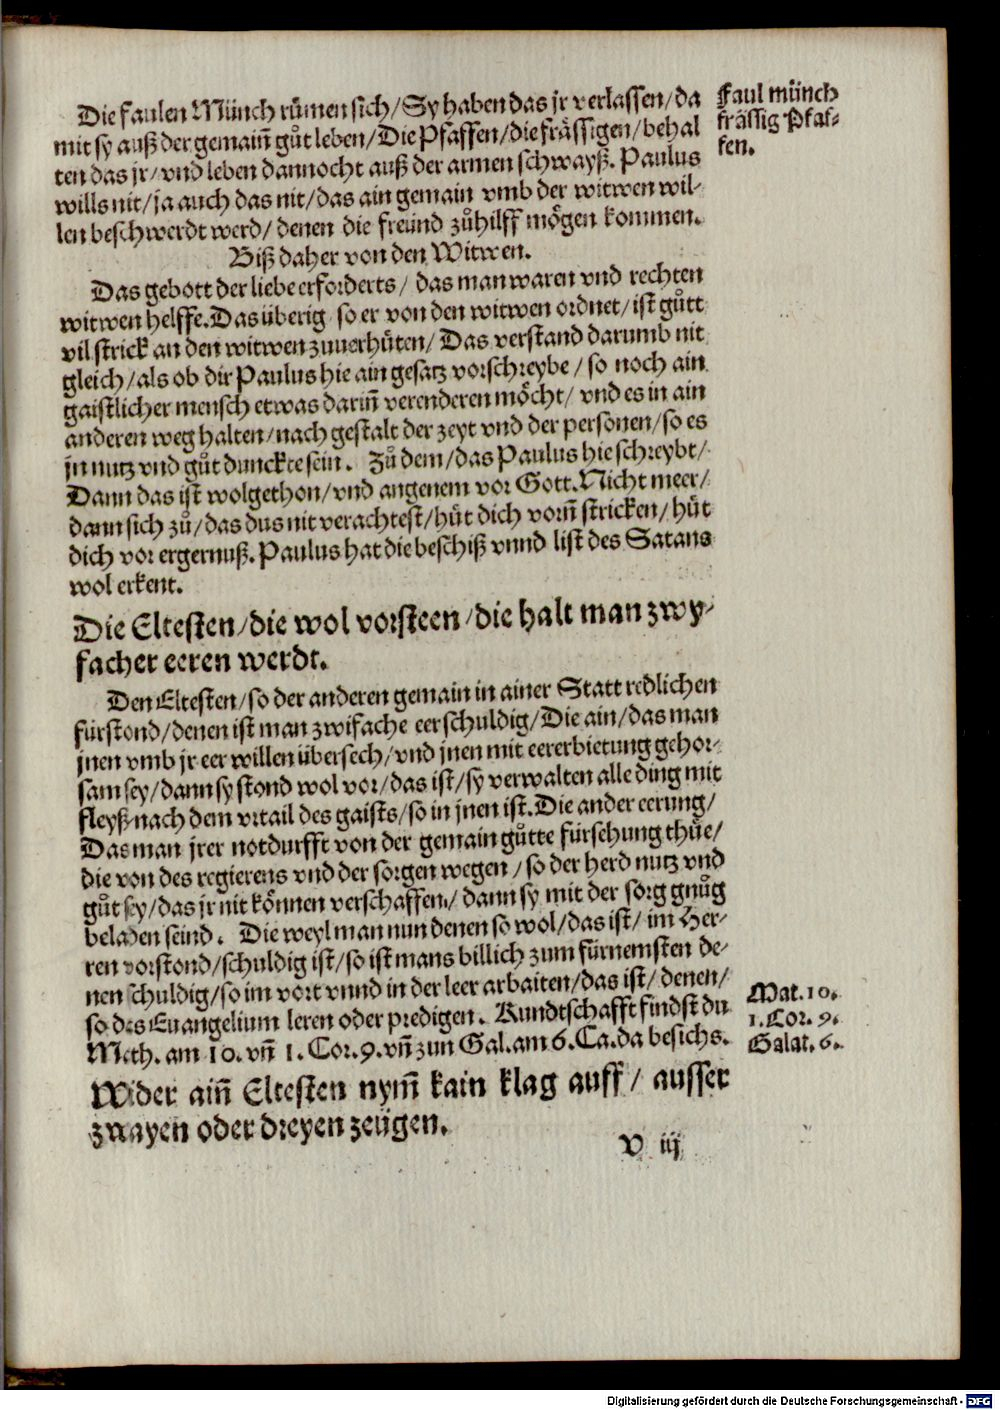 Die faulen Münch růmen sich/ Sy haben das jr verlassen/ da
mit sy auß der gemaiñ gůt leben/ Die Pfaffen/ die frässigen/ behal
ten das jr/ vnd leben dannocht auß der armen schwayß. Paulus
wills nit/ ja auch das nit/ das ain gemain vmb der witwen wil-
len beschwerdt werd/ denen die freünd zůhilff mögen kommen.
Biß daher von den Witwen.
Das gebott der liebe erforderts/ das man waren vnd rechten
witwen helffe. Das überig so er von den witwen ordnet/ ist gůtt
vil strick an den witwen zuuerhüten/ Das verstand darumb nit
gleich/ als ob dir Paulus hie ain gesatz vorschreybe/ so noch ain
gaistlicher mensch etwas dariñ verenderen möcht/ vnd es in ain
anderen weg halten/ nach gestalt der zeyt vnd der personen/ so es
jn nutz vnd gůt dunckte sein. Zů dem/ das Paulus hie schreybt/
Dann das ist wolgethon/ vnd angenem vor Gott. Nicht meer/
dann sich zů/ das dus nit verachtest/ hüt dich vorñ stricken/ hüt
dich vor ergernuß. Paulus hat die beschiß vnnd list des Satans
wol erkent.
Die Eltesten/ die wol vorsteen/ die halt man zwy-
facher eeren werdt.
Den Eltesten/ so der anderen gemain in ainer Statt redlichen
fürstond/ denen ist man zwifache eer schuldig/ Die ain/ das man
jnen vmb jr eer willen übersech/ vnd jnen mit eererbietung gehor-
sam sey/ dann sy stond wol vor/ das ist/ sy verwalten alle ding mit
fleyß nach dem vrtail des gaists/ so in jnen ist. Die ander eerung/
Das man jrer notdurfft von der gemain gůtte fürsehung thüe/
die von des regierens vnd der sorgen wegen/ so der herd nutz vnd
gůt sey/ das jr nit können verschaffen/ dann sy mit der sorg gnůg
beladen seind. Die weyl man nun denen so wol/ das ist/ im Her-
ren vorstond/ schuldig ist/ so ist mans billich zum fürnemsten de-
nen schuldig/ so im wort vnnd in der leer arbaiten/ das ist/ denen/
so des Euangelium leren oder predigen. Kundtschafft findst du
Math. am 10. vñ 1. Cor. 9. vñ zun Gal. am 6. Ca. da besichs.
Wider aiñ Eltesten nym̃ kain klag auff/ ausser
zwayen oder dreyen zeügen.
v iij
Faul münch
frässig Pfaf-
fen.
Mat. 10.
1. Cor. 9.
Galat. 6.
Digitalisierung gefördert durch die Deutsche Forschungsgemeinschaft - DFG